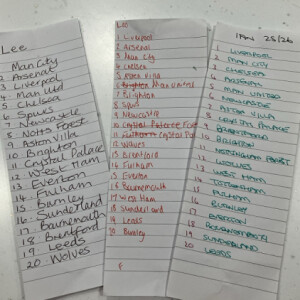 Lee
1 Man City
2 Arsenal
3 Liverpool
4 Man Utd
5 Chelsea
6 Spurs
7 Newcastle
8 Notts Forest
9 Aston Villa
10 Brighton
11 Crystal Palace
12 West Ham
13 Everton
14 Fulham
15 Burnley
16 Sunderland
17 Bournemouth
18 Brentford
19 Leeds
20 Wolves
Lee
1 Liverpool
2 Arsenal
3 Man City
4 Chelsea
5 Aston Villa
6 Brighton Man United
7 Brighton
8 Spurs
9 Newcastle
10 Crystal Palace Forest
11 Crystal Pal
12 Wolves
13 Brentford
14 Fulham
15 Everton
16 Bournemouth
17 West Ham
18 Sunderland
19 Leeds
20 Burnley
25/26
1 LIVERPOOL
2 MAN CITY
3 CHELSEA
4 ARSENAL
5 MAN UNITED
6 NEWCASTLE
7 ASTON VILLA
8 CRYSTAL PALACE
9
10 BRIGHTON
11 NOTTINGHAM FOREST
12 WOLVES
13 WEST HAM
14 TOTTENHAM
15 FULHAM
16 BURNLEY
17 EVERTON
18 BOURNEMOUTH
19 SUNDERLAND
20 LEEDS